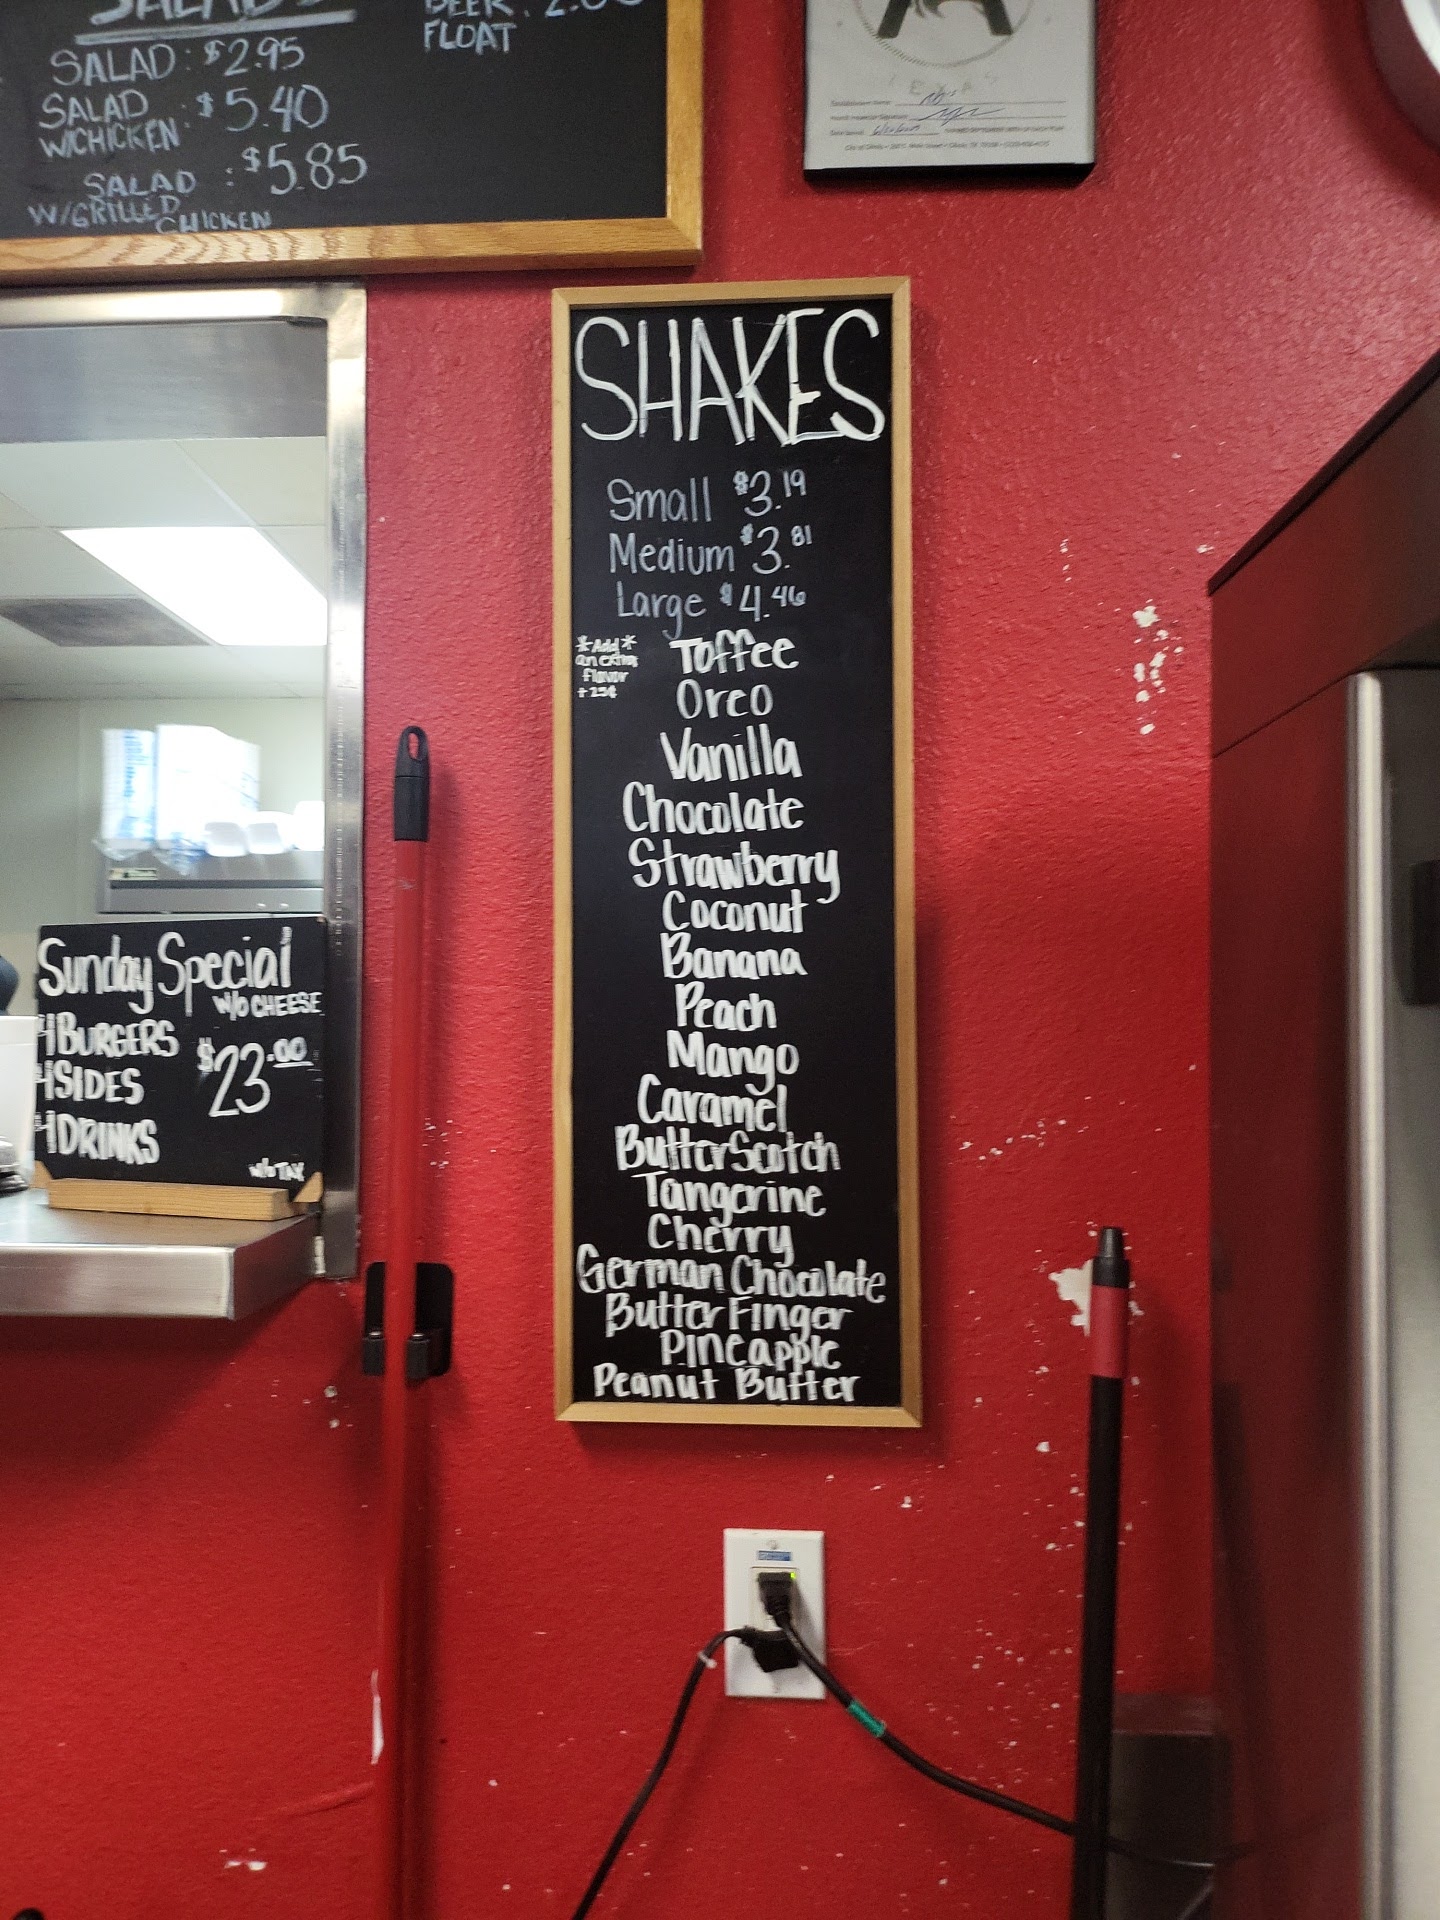 SALADS
SALAD: $2.95
SALAD W/CHICKEN: $5.40
SALAD W/GRILLED CHICKEN: $5.85
BEER
FLOAT
SHAKES
Small $3.19
Medium $3.81
Large $4.46
*Add*
an extra
flavor
+25¢
Toffee
Oreo
Vanilla
Chocolate
Strawberry
Coconut
Banana
Peach
Mango
Caramel
ButterScotch
Tangerine
Cherry
German Chocolate
Butter Finger
Pineapple
Peanut Butter
Sunday Special
W/O CHEESE
4 BURGERS
4 SIDES
4 DRINKS
$23.00
W/O TAX
TEXAS